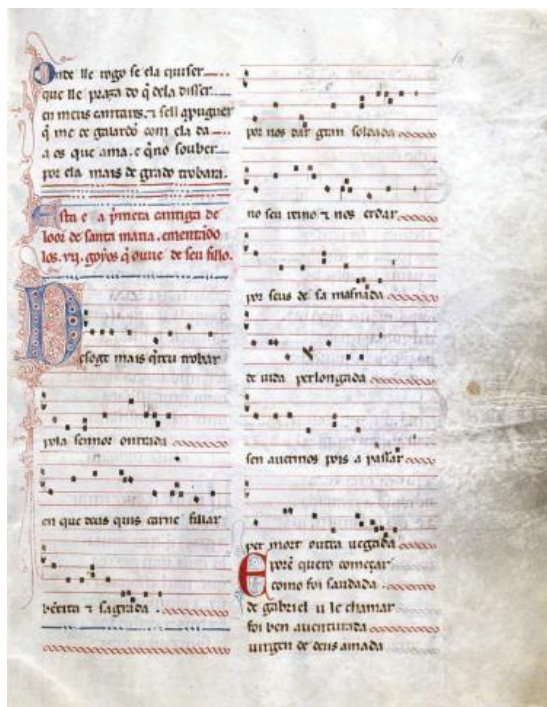 Onde lle rogo se ela quiser
que lle praza do q̄ dela disser
en meus cantares. ⁊ sell aprouguer
q̄ me de galardō com ela da
a os que ama. e q̄no souber
por ela mais de grado trobara.
Esta e a p̄meira cantiga de
loor de santa maria. ementādo
los. vij. goyos q̄ ouue de seu fillo.
Desoge mais q̄reu trobar
pola sennor onrrada
en que deus quis carne fillar
bēeita ⁊ sagrada .
por nos dar gran soldada
no seu reino ⁊ nos erdar
por seus de sa masnada
de uida perlongada
sen auermos pois a passar
per mort outra uegada
E porē quero começar
como foi saudada
de gabriel u le chamar
foi ben auenturada
uirgen de deus amada